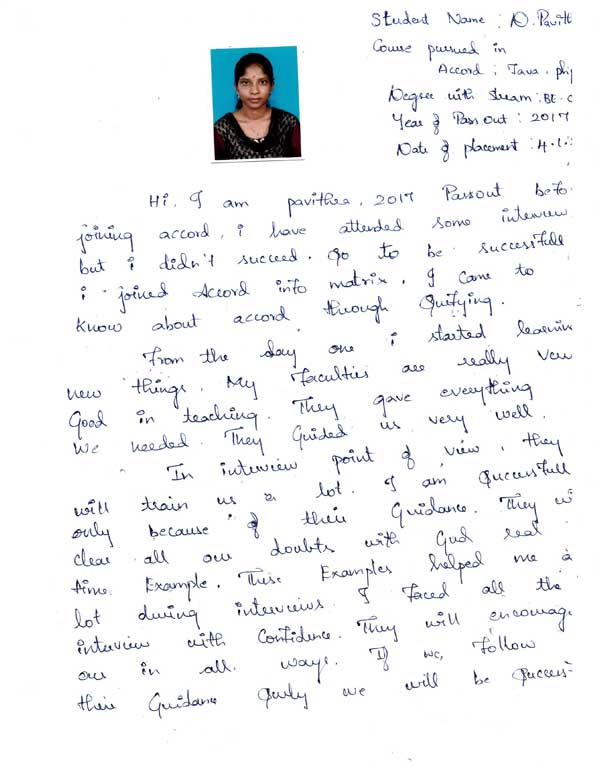 Student Name : D. Pavith
Course pursued in
Accord : Java, php
Degree with stream : BE. C
Year of Pass out : 2017
Date of placement : 4.1.
Hi, I am pavithra, 2017 Passout befo
joining accord, i have attended some interview
but i didn't succeed. So to be successfull
i joined Accord info matrix. I came to
know about accord through
From the day one i started learnin
new things. My Faculties are really ver
Good in teaching. They gave everything
we needed. They Guided us very well.
In interview point of view, they
will train us a lot. I am Successfull
only because of their Guidance. They wi
clear all our doubts with God real
time Example. These Examples helped me a
lot during interviews. I Faced all the
interview with Confidence. They will encourag
our in all ways. If we, Follow
their Guidance surly we will be Success-